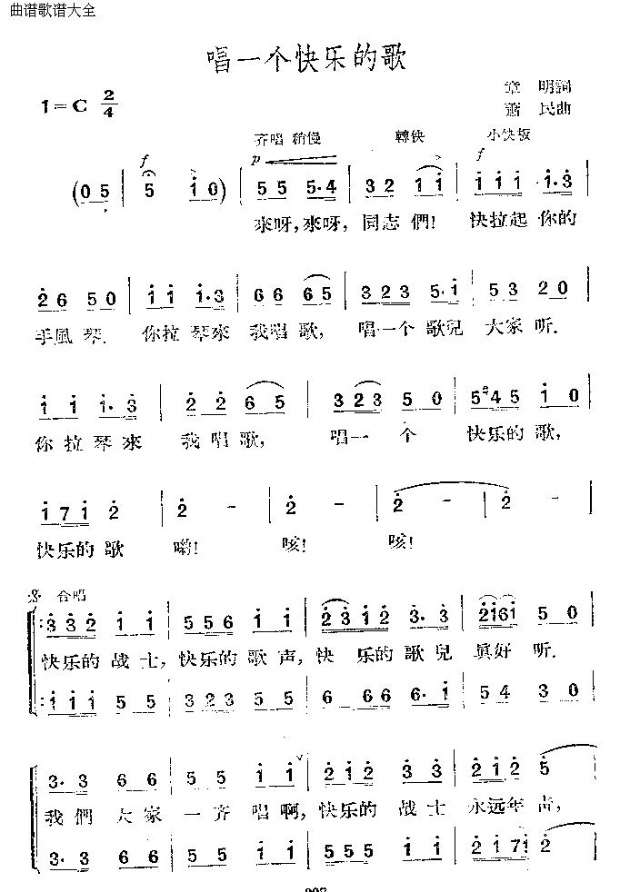 曲谱歌谱大全
唱一个快乐的歌
1=C 2/4
章 明詞
蕭 民曲
齐唱 稍慢 轉快 小快板
p f
(0 5 5 1 0) 5 5 5·4 3 2 1 1 1 1 1 1·3
來呀,來呀,同志們! 快拉起你的
2 6 5 0 1 1 1·3 6 6 6 5 3 2 3 5·1 5 3 2 0
手風琴. 你拉琴來我唱歌, 唱一个歌兒大家听.
1 1 1·3 2 2 6 5 3 2 3 5 0 5 4 5 1 0
你拉琴來 我唱歌, 唱一个 快乐的歌,
1 7 1 2 2 - 2 - 2 - 2 -
快乐的歌 喲! 咳! 咳!
合唱
3 3 2 1 1 5 5 6 1 1 2 3 1 2 3·3 2 1 6 1 5 0
快乐的战士,快乐的歌声,快乐的歌兒眞好听.
1 1 1 5 5 3 2 3 5 5 6 6 6 6·1 5 4 3 0
3·3 6 6 5 5 1 1 2 1 2 3 3 2 1 2 5
我們大家一齐唱啊,快乐的战士永远年青,
3·3 6 6 5 5 1 1 5 5 5 1 1 2 1 7 1 2